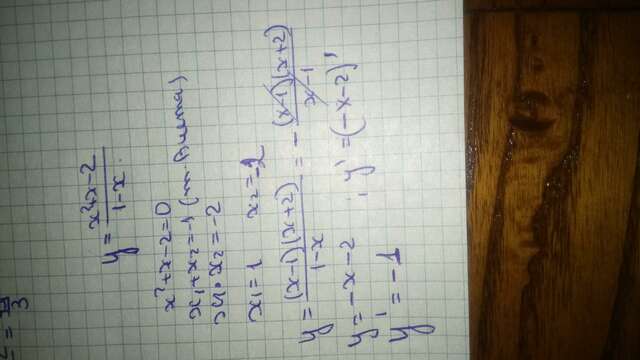 = π/3
y = (x²+x-2)/(1-x)
x²+x-2=0
x₁+x₂=-1 (т. Виета)
x₁·x₂=-2
x₁=1 x₂=-2
y = (x-1)(x+2)/(1-x) = -(x-1)(x+2)/(x-1)
y=-x-2, y'=(-x-2)'
y'=-1